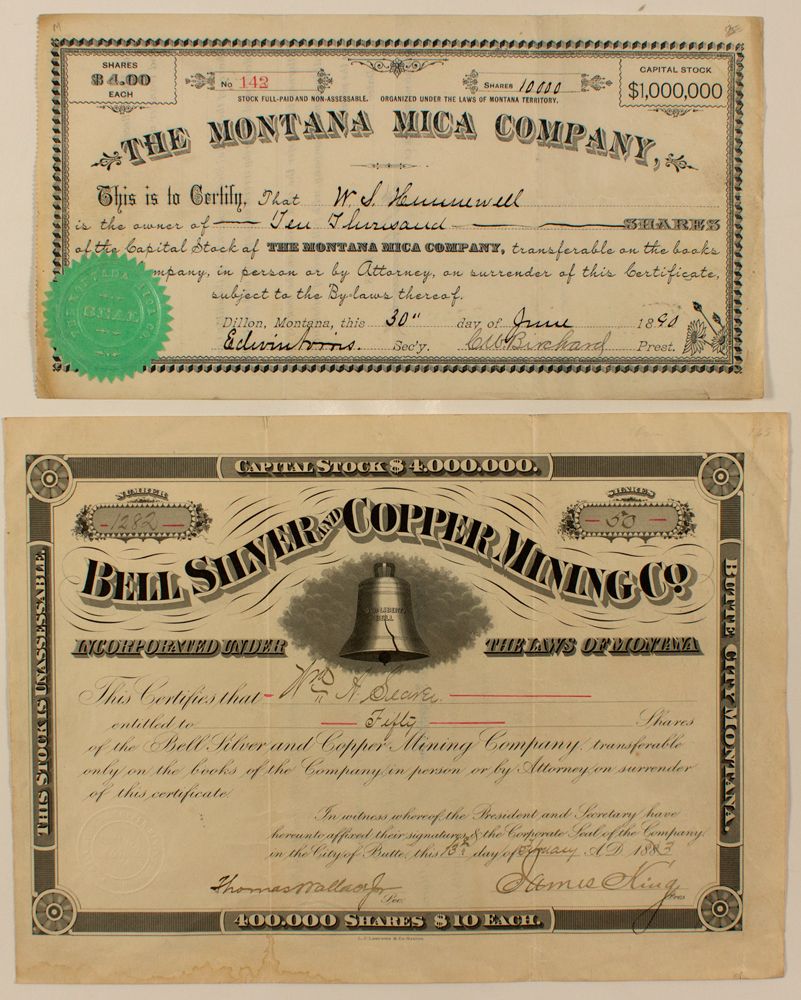 M
SHARES
$4.00
EACH
No 142
SHARES 10000
CAPITAL STOCK
$1,000,000
STOCK FULL-PAID AND NON-ASSESSABLE. ORGANIZED UNDER THE LAWS OF MONTANA TERRITORY.
THE MONTANA MICA COMPANY,
This is to Certify, That W. S. Hunnewell
is the owner of Ten Thousand SHARES
of the Capital Stock of THE MONTANA MICA COMPANY, transferable on the books
ompany, in person or by Attorney, on surrender of this Certificate,
subject to the By-laws thereof.
THE MONTANA MICA CO.
SEAL
Dillon, Montana, this 30" day of June 1890
Edwin Norris. Sec'y. C.W. Birchard Prest.
CAPITAL STOCK $4.000.000.
NUMBER
-1282-
SHARES
-50-
BELL SILVER AND COPPER MINING CO.
LIBERTY
BELL
INCORPORATED UNDER THE LAWS OF MONTANA
THIS STOCK IS UNASSESSABLE.
BUTTE CITY MONTANA.
This Certifies that - Wm A. Seaver
entitled to Fifty Shares
of the Bell Silver and Copper Mining Company, transferable
only on the books of the Company in person or by Attorney on surrender
of this certificate.
In witness whereof, the President and Secretary have
hereunto affixed their signatures & the Corporate Seal of the Company
in the City of Butte, this 13th day of February A.D. 1883
Thomas Wallace Jr Sec. James King Pres.
400.000 SHARES $10 EACH.